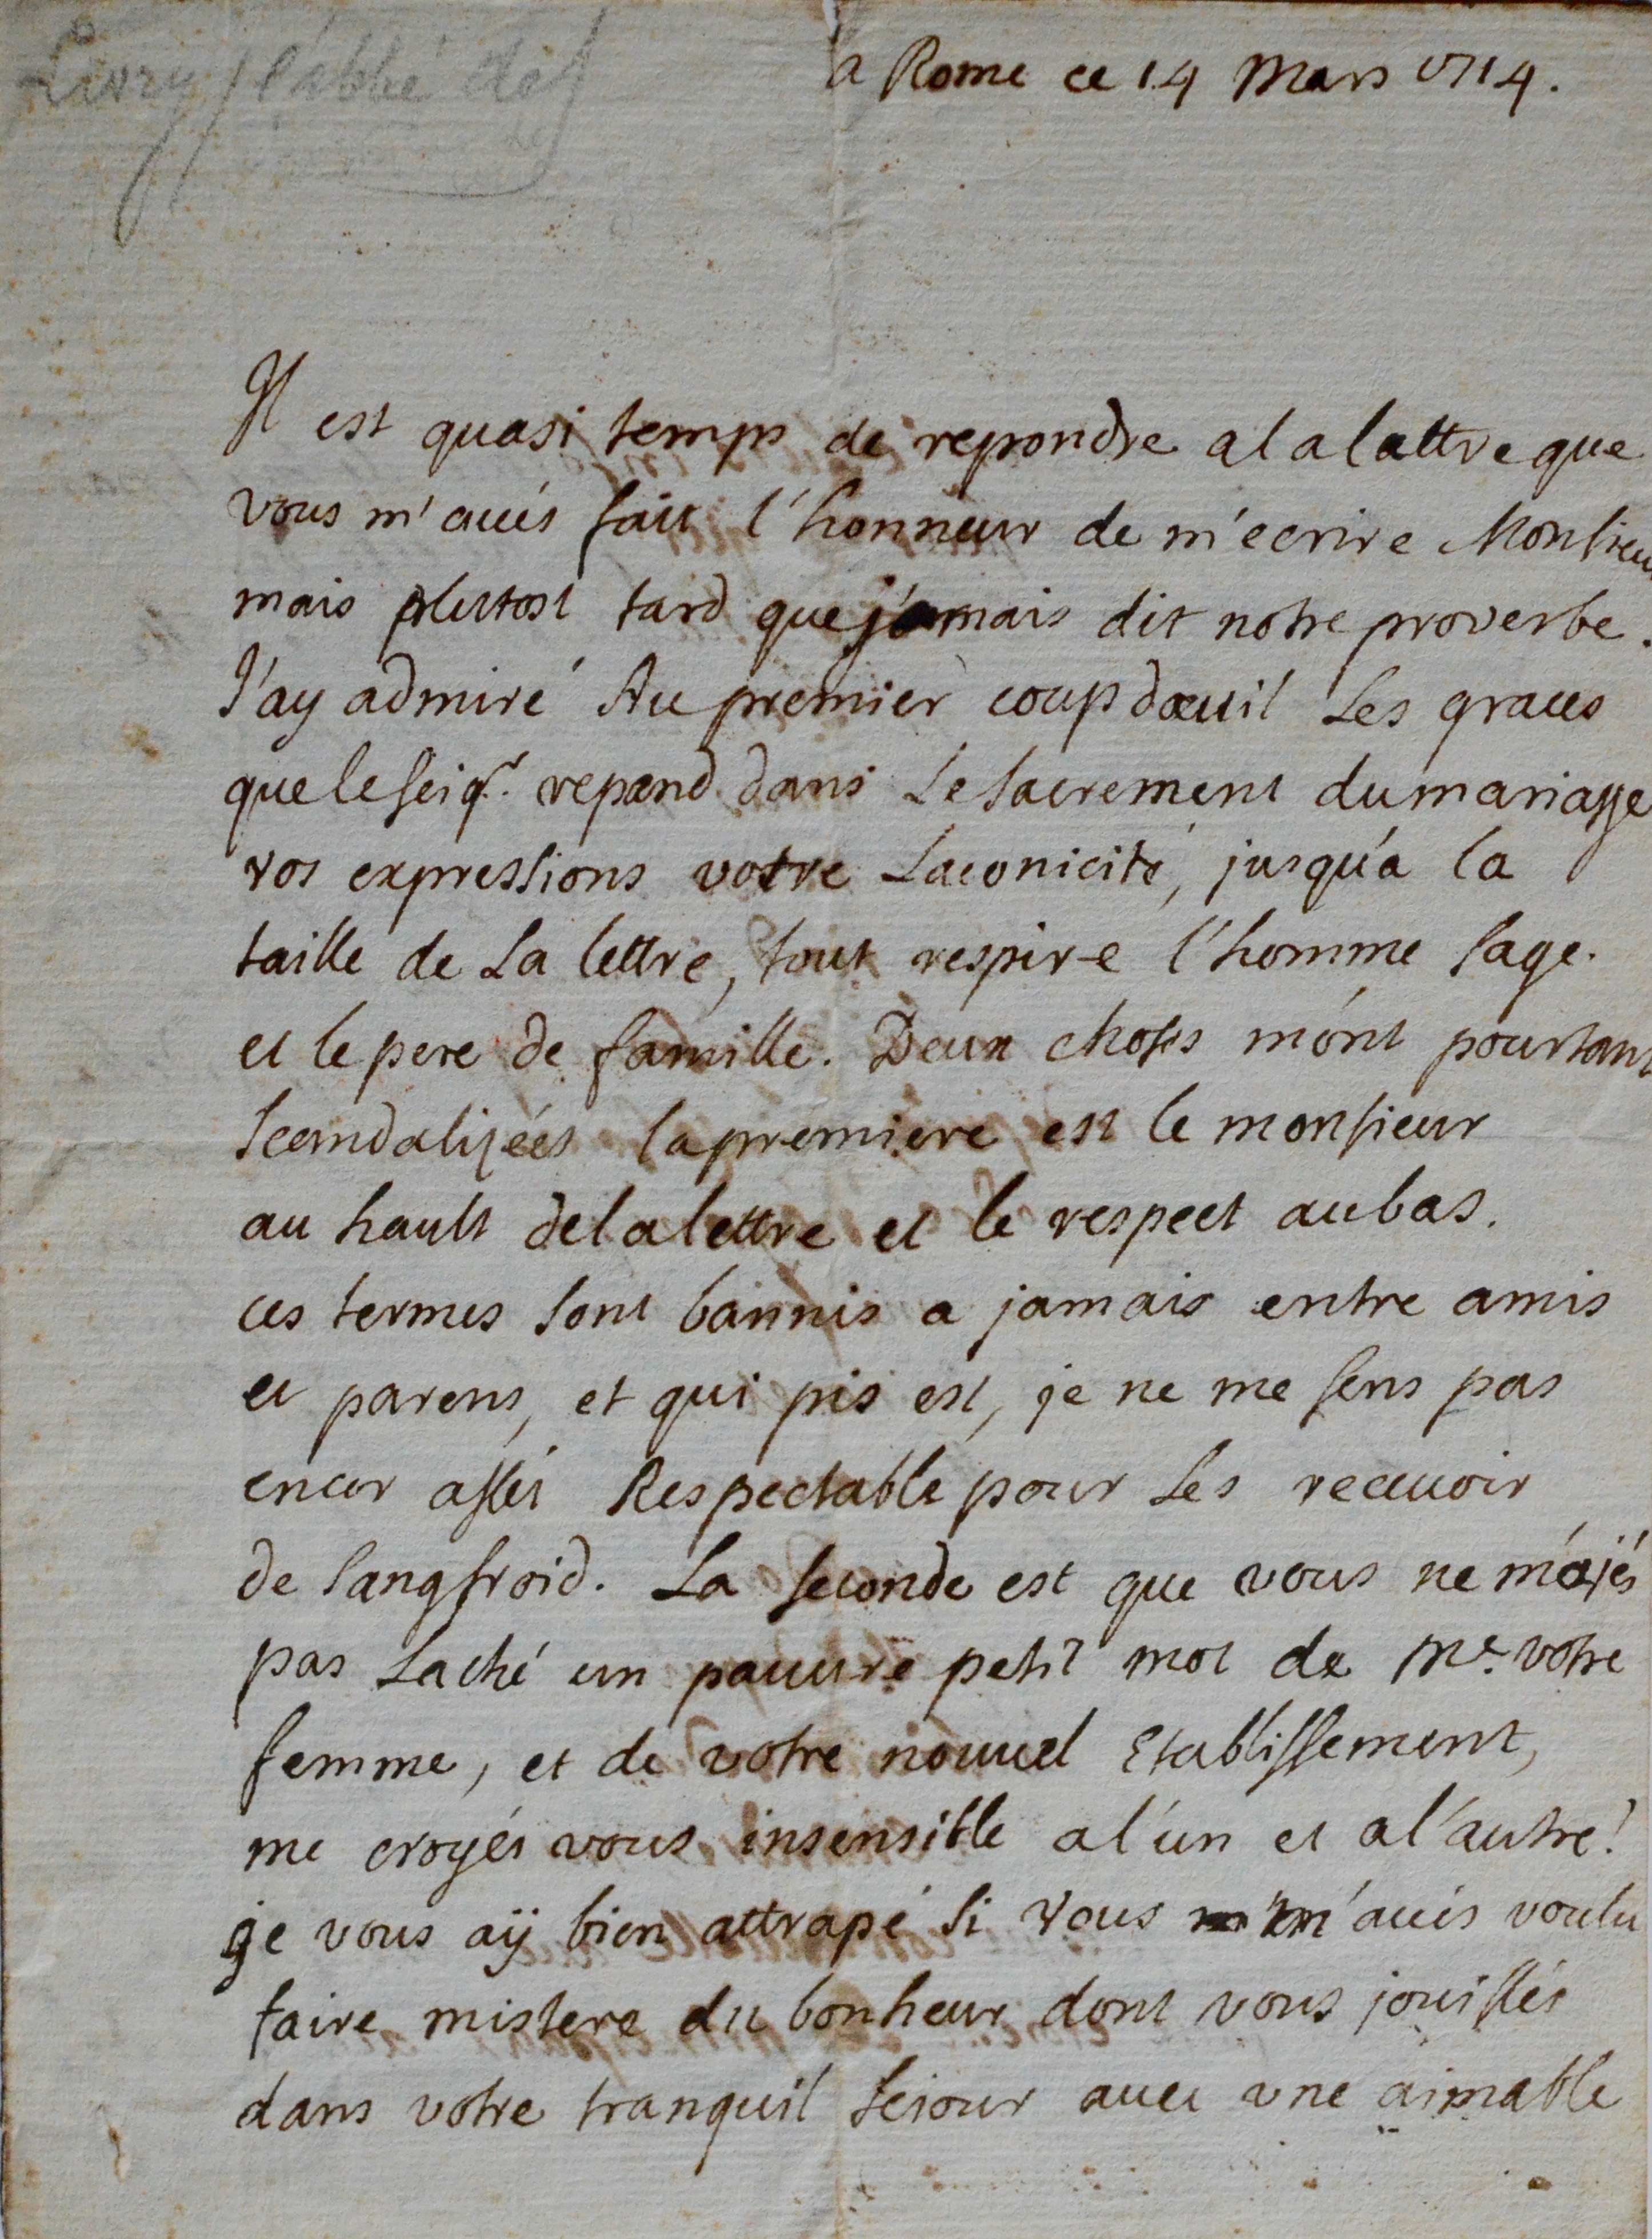 Livry (l'abbé de)
a Rome ce 14 Mars 1714.
Il est quasi temps de repondre a la lettre que
vous m'avés fait l'honneur de m'ecrire Monsieur
mais plutost tard que jamais dit notre proverbe.
J'ay admiré Au premier coup dœuil Les graces
que le seigr. repand dans Le sacrement du mariage
vos expressions votre Laconicité, jusqu'a la
taille de La lettre, tout respire l'homme sage.
et le pere de famille. Deux choses m'ont pourtant
scandalizées la premiere est le monsieur
au hault de la lettre et le respect au bas.
ces termes sont bannis a jamais entre amis
et parens, et qui pis est, je ne me sens pas
encor assés Respectable pour Les recevoir
de sangfroid. La seconde est que vous ne m'ajés
pas Laché un pauvre petit mot de Me. votre
femme, et de votre nouvel Etablissement,
me croyés vous insensible a l'un et a l'autre?
je vous aÿ bien attrapé si vous m'avés voulu
faire mistere du bonheur dont vous jouissés
dans votre tranquil seiour avec une aimable